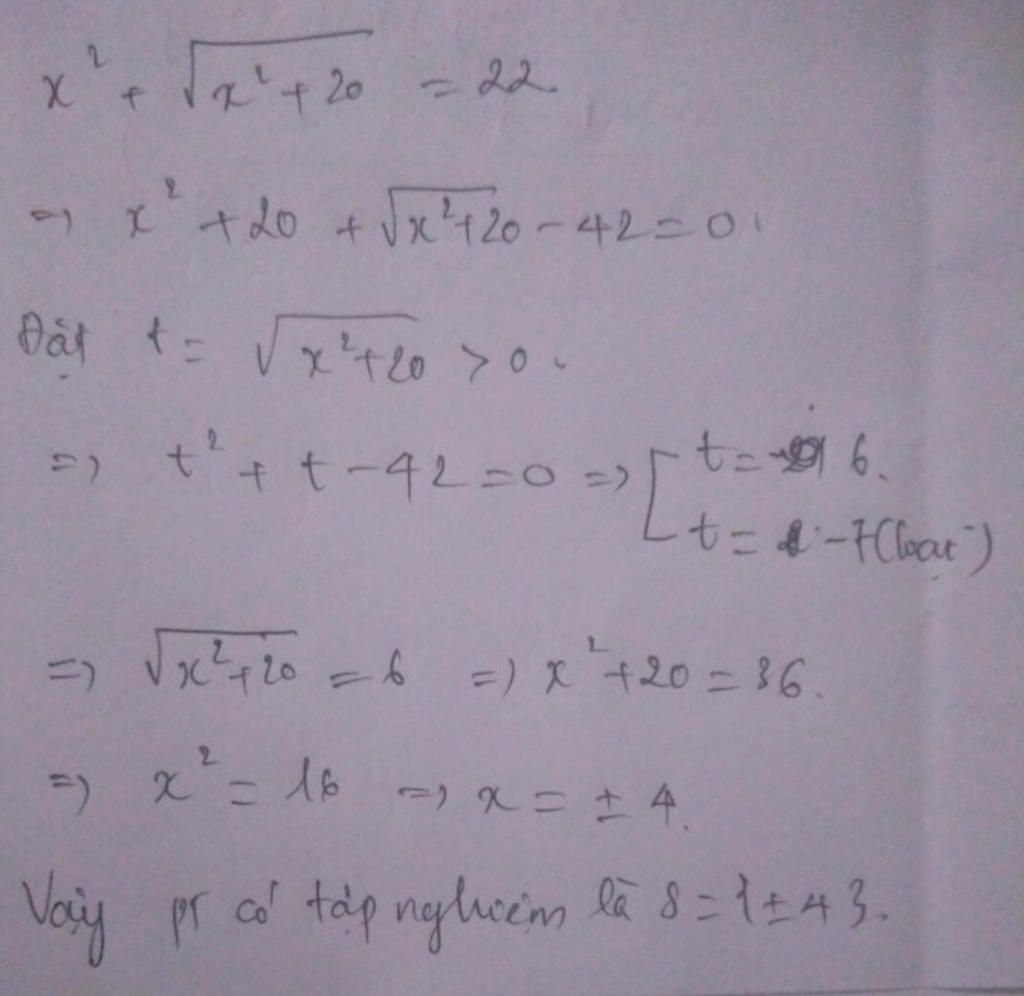 x² + √(x²+20) = 22
=> x² + 20 + √(x²+20) - 42 = 0.
Đặt t = √(x²+20) > 0.
=> t² + t - 42 = 0 => [ t = 6.
t = -7 (loại)
=> √(x²+20) = 6 => x² + 20 = 36.
=> x² = 16 => x = ± 4.
Vậy pt có tập nghiệm là S = {±4}.